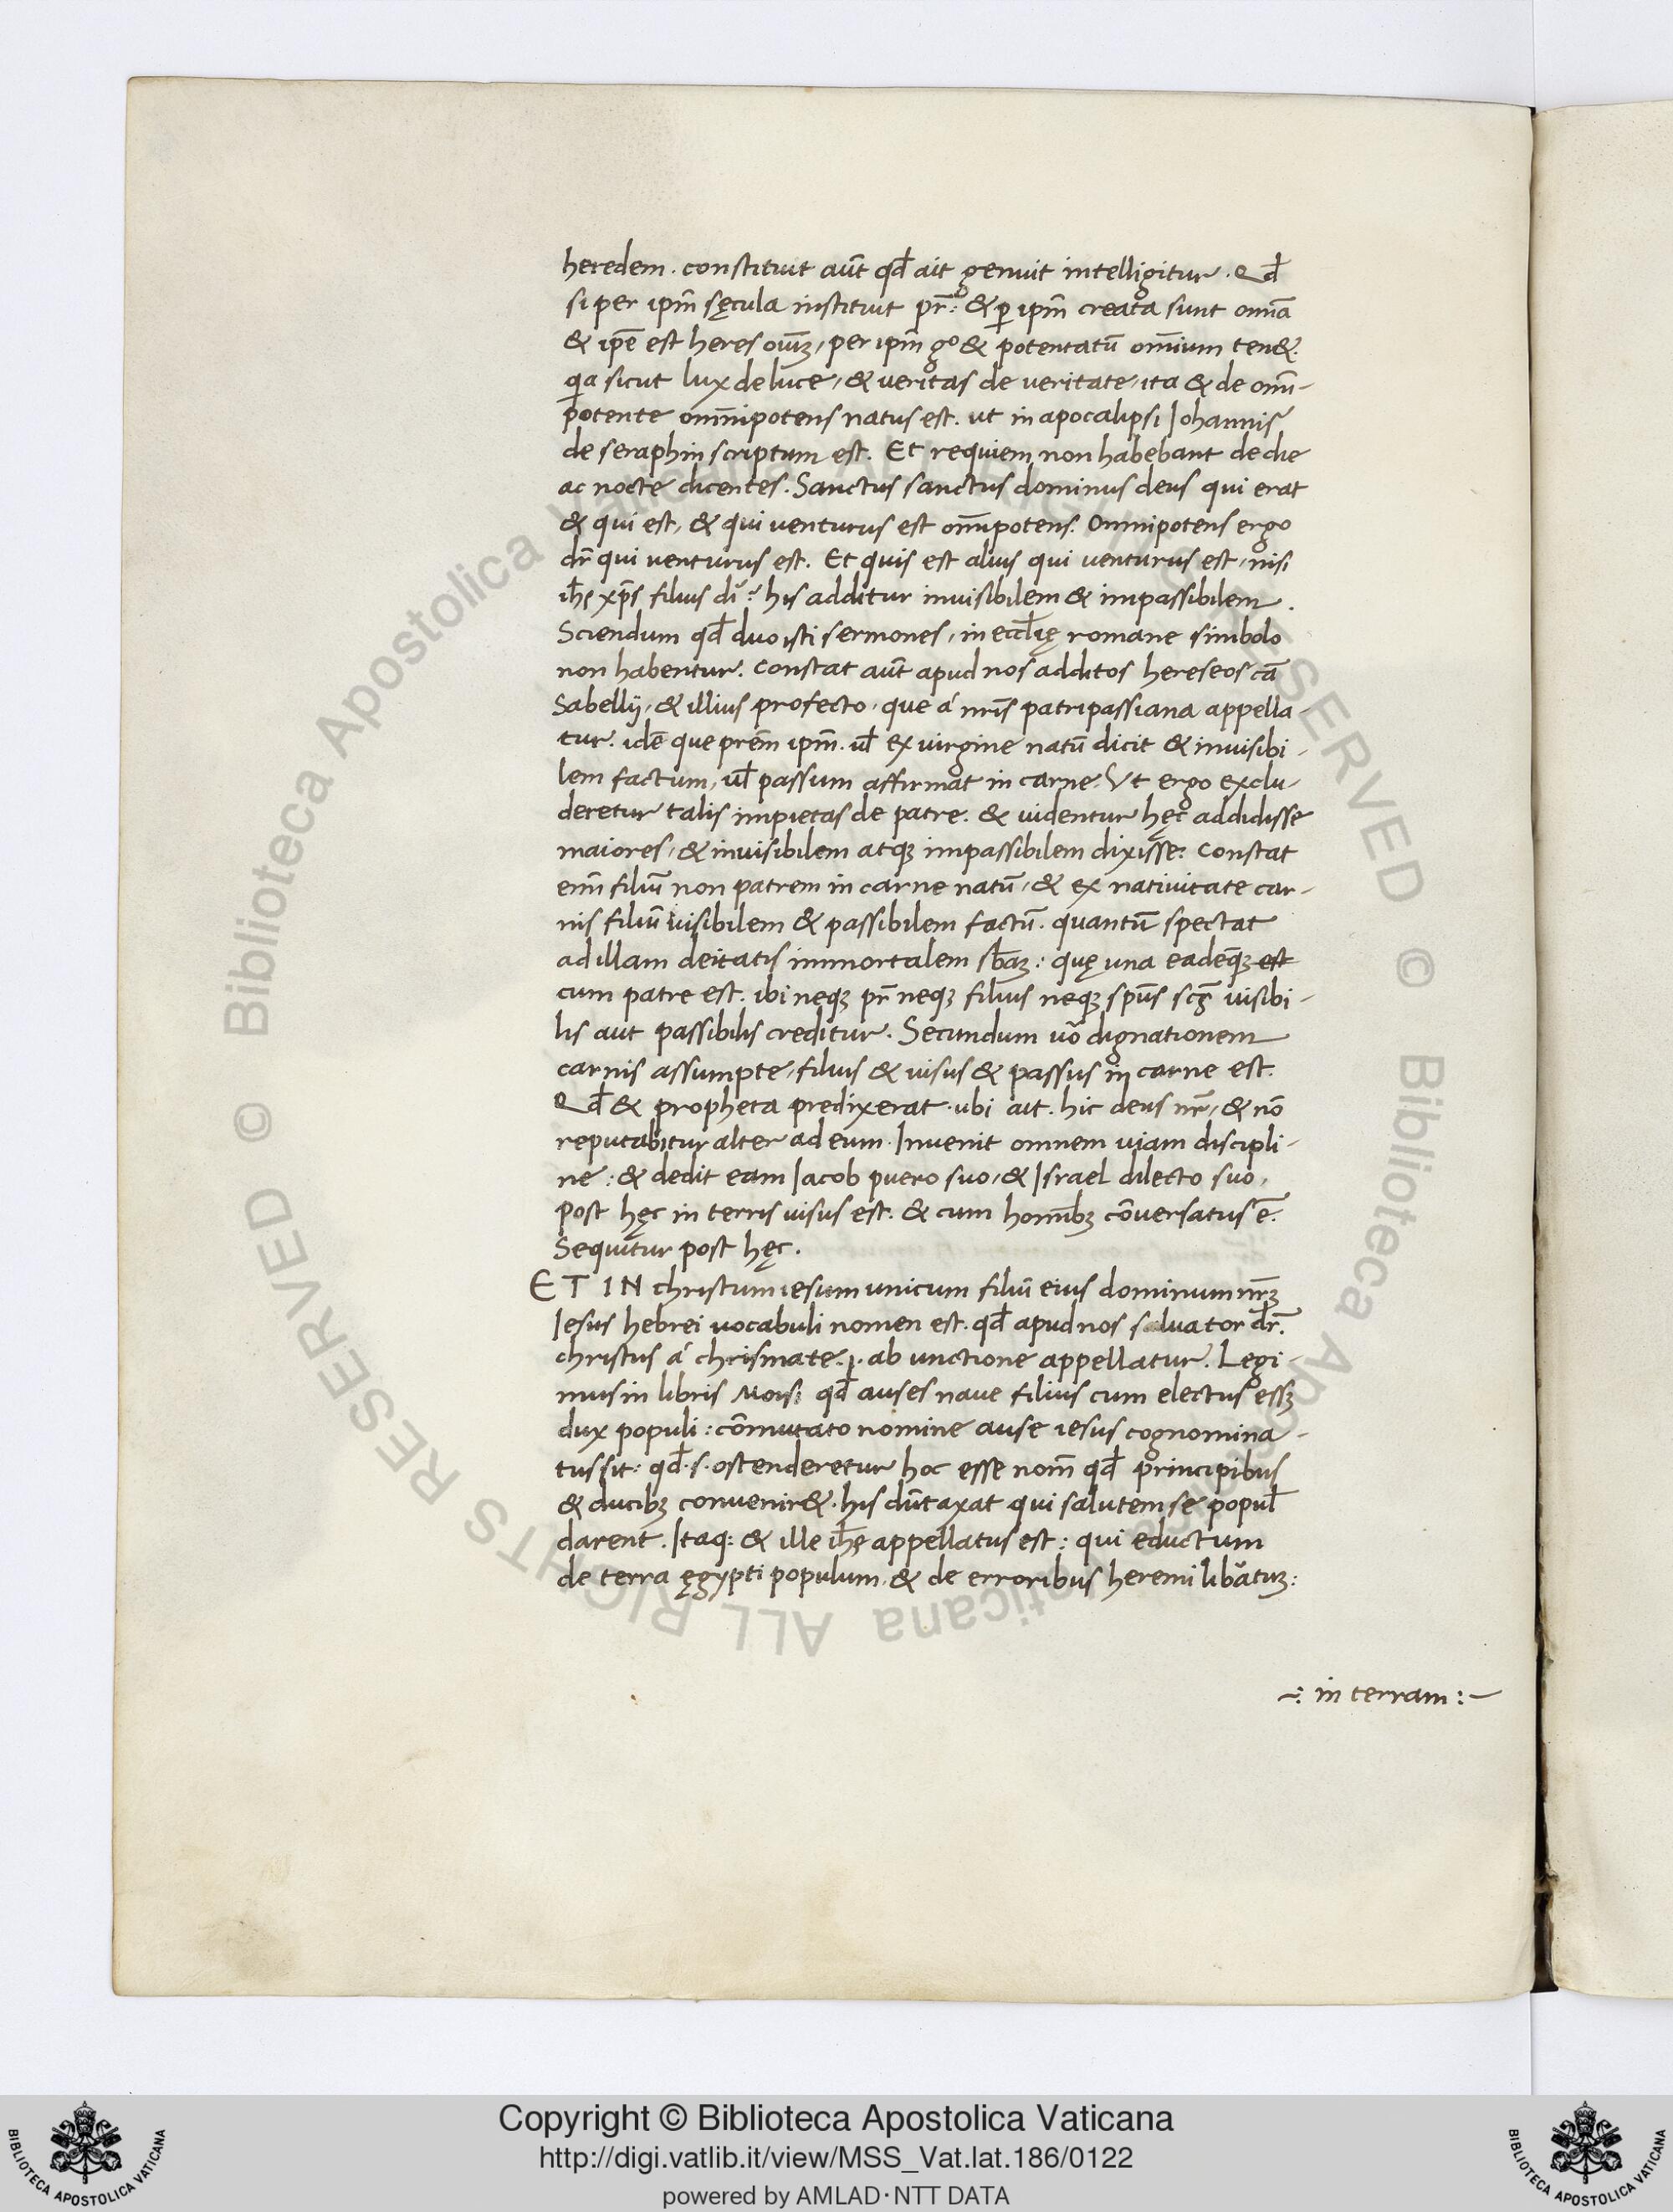 heredem. constituit aut̄ qd̄ ait genuit intelligitur. Qd̄
si per ipm̄ sęcula instituit pr̄: & ꝑ ipm̄ creata sunt omīa
& ipē est heres oīum, per ipm̄ gº & potentatū omīum ten&.
qa sicut lux de luce, & veritas de veritate, ita & de omī-
potente omīnipotens natus est. ut in apocalipsi Johannis
de seraphin scriptum est. Et requiem non habebant de die
ac nocte dicentes. Sanctus sanctus dominus deus qui erat
& qui est, & qui venturus est omīpotens. Omnipotens ergo
dr̄ qui venturus est. Et quis est alius qui venturus est, nisi
ih̄s xp̄s filius dī? his additur invisibilem & impassibilem.
Sciendum qd̄ duo isti sermones, in eccl̄ię romane simbolo
non habentur. constat aut̄ apud nos additos hereseos cā
Sabellij, & illius profecto, que á nrīs patripassiana appella-
tur. idē que prēm ipm̄. ul̄ ex virgine natū dicit & invisibi-
lem factum, ul̄ passum affirmat in carne. Vt ergo exclu-
deretur talis impietas de patre. & videntur hęc addidisse
maiores, & invisibilem atqꝫ impassibilem dixisse: Constat
enī filiū non patrem in carne natū, & ex nativitate car-
nis filiū visibilem & passibilem factū. quantū spectat
ad illam deitatis immortalem sb̄aꝫ: quę una eadēqꝫ est
cum patre est. ibi neqꝫ pr̄ neqꝫ filius neqꝫ spūs scs̄ visibi-
lis aut passibilis creditur. Secundum uō dignationem
carnis assumpte, filius & visus & passus in carne est.
Qd̄ & propheta predixerat. ubi ait. hic deus nr̄, & nō
reputabitur alter ad eum. Invenit omnem viam discipli-
ne: & dedit eam Jacob puero suo, & Israel dilecto suo,
Post hęc in terris visus est. & cum homībꝫ cōversatus ē.
Sequitur post hęc.
ET IN christum iesum unicum filiū eius dominum nr̄ꝫ
Jesus hebrei vocabuli nomen est. qd̄ apud nos salvator dr̄.
christus á chrismate .i. ab unctione appellatur. Legi-
mus in libris Moisi qd̄ auses nave filius cum electus essꝫ
dux populi: cōmutato nomine ause iesus cognomina-
tus sit: qd̄ .s. ostenderetur hoc esse nom̄ qd̄ principibus
& ducibꝫ convenir&. his dūtaxat qui salutem se popul̄
darent. Itaqꝫ & ille ih̄s appellatus est: qui eductum
de terra ęgypti populum, & de erroribus heremi libātuꝫ:
~: in terram :~
Copyright © Biblioteca Apostolica Vaticana
http://digi.vatlib.it/view/MSS_Vat.lat.186/0122
powered by AMLAD·NTT DATA
BIBLIOTECA APOSTOLICA VATICANA
BIBLIOTECA APOSTOLICA VATICANA
© Biblioteca Apostolica Vaticana ALL RIGHTS RESERVED